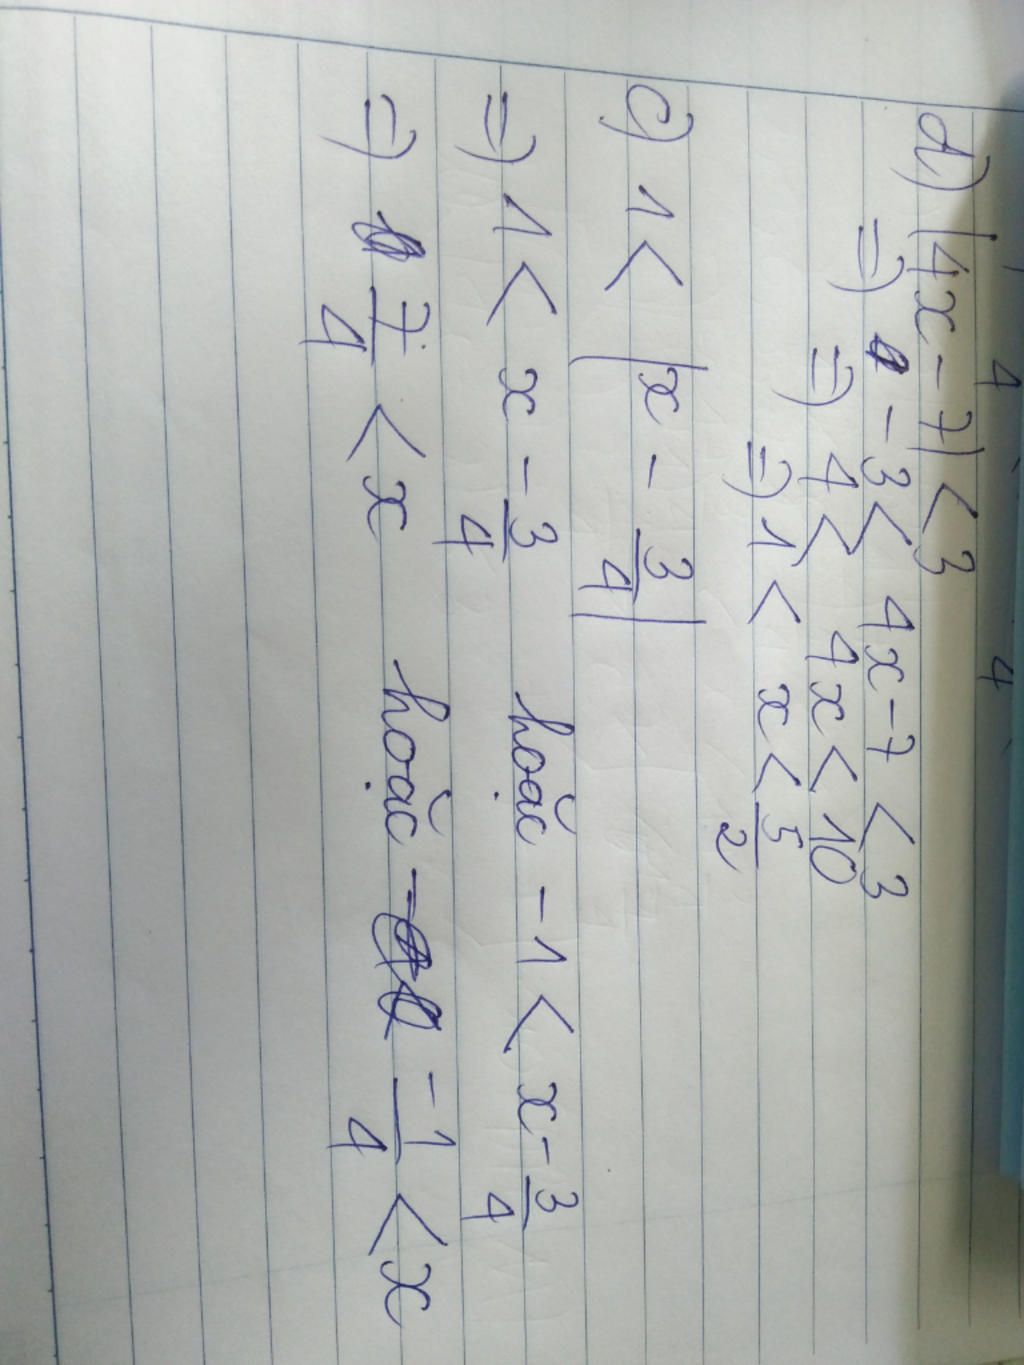 4 4
d) |4x - 7| < 3
=) -3 < 4x - 7 < 3
=) 4 < 4x < 10
=) 1 < x < 5/2
c) 1 < |x - 3/4|
=) 1 < x - 3/4 hoặc -1 < x - 3/4
=) 7/4 < x hoặc - -1/4 < x